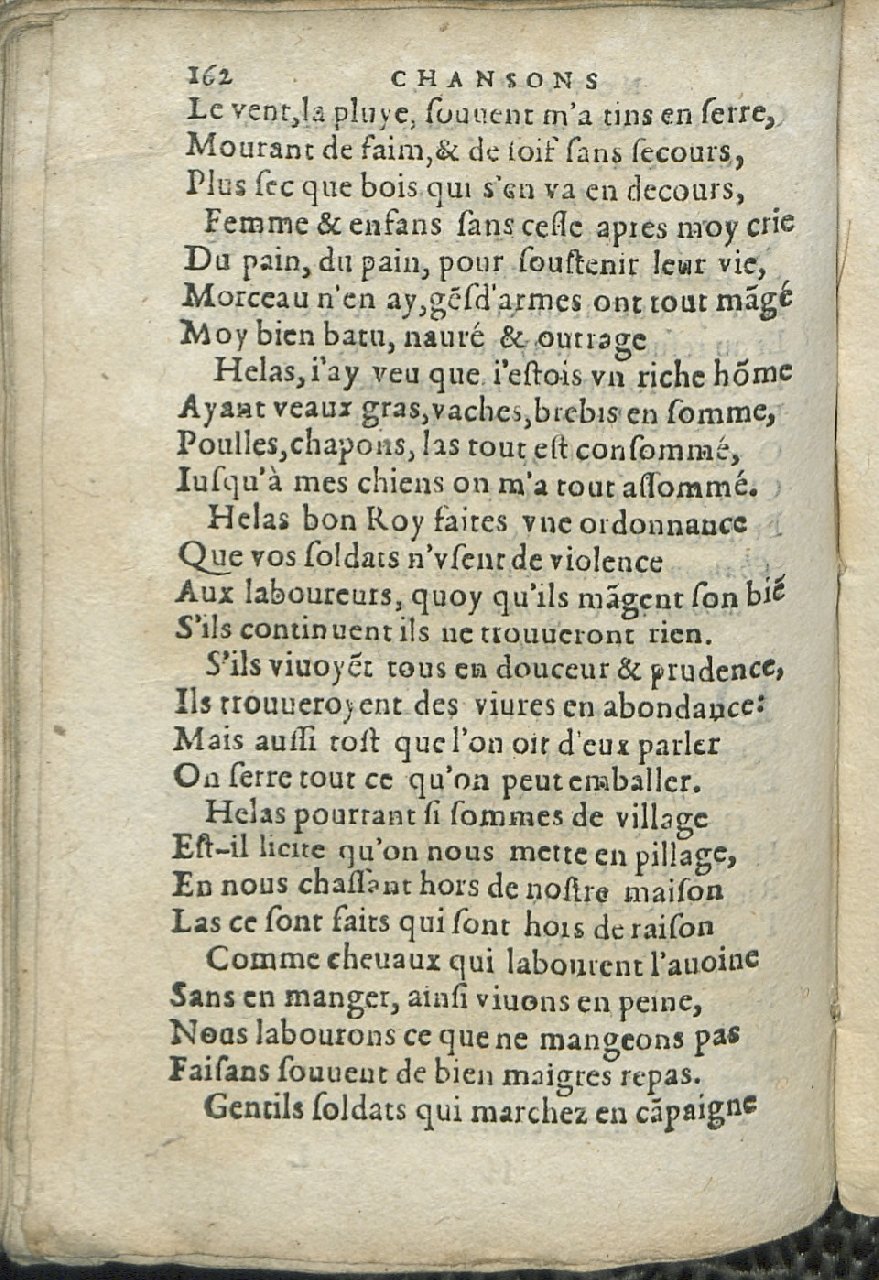 162 CHANSONS
Le vent, la pluye, souuent m'a tins en serre,
Mourant de faim, & de soif sans secours,
Plus sec que bois qui s'en va en decours,
Femme & enfans sans cesse apres moy crie
Du pain, du pain, pour soustenir leur vie,
Morceau n'en ay, gẽsd'armes ont tout mãgé
Moy bien batu, nauré & outrage
Helas, i'ay veu que i'estois vn riche hõme
Ayant veaux gras, vaches, brebis en somme,
Poulles, chapons, las tout est consommé,
Iusqu'à mes chiens on m'a tout assommé.
Helas bon Roy faites vne ordonnance
Que vos soldats n'vsent de violence
Aux laboureurs, quoy qu'ils mãgent son biẽ
S'ils continuent ils ne trouueront rien.
S'ils viuoyẽt tous en douceur & prudence,
Ils trouueroyent des viures en abondance:
Mais aussi tost que l'on oit d'eux parler
On serre tout ce qu'on peut emballer.
Helas pourtant si sommes de village
Est-il licite qu'on nous mette en pillage,
En nous chassant hors de nostre maison
Las ce sont faits qui sont hors de raison
Comme cheuaux qui labourent l'auoine
Sans en manger, ainsi viuons en peine,
Nous labourons ce que ne mangeons pas
Faisans souuent de bien maigres repas.
Gentils soldats qui marchez en cãpaigne